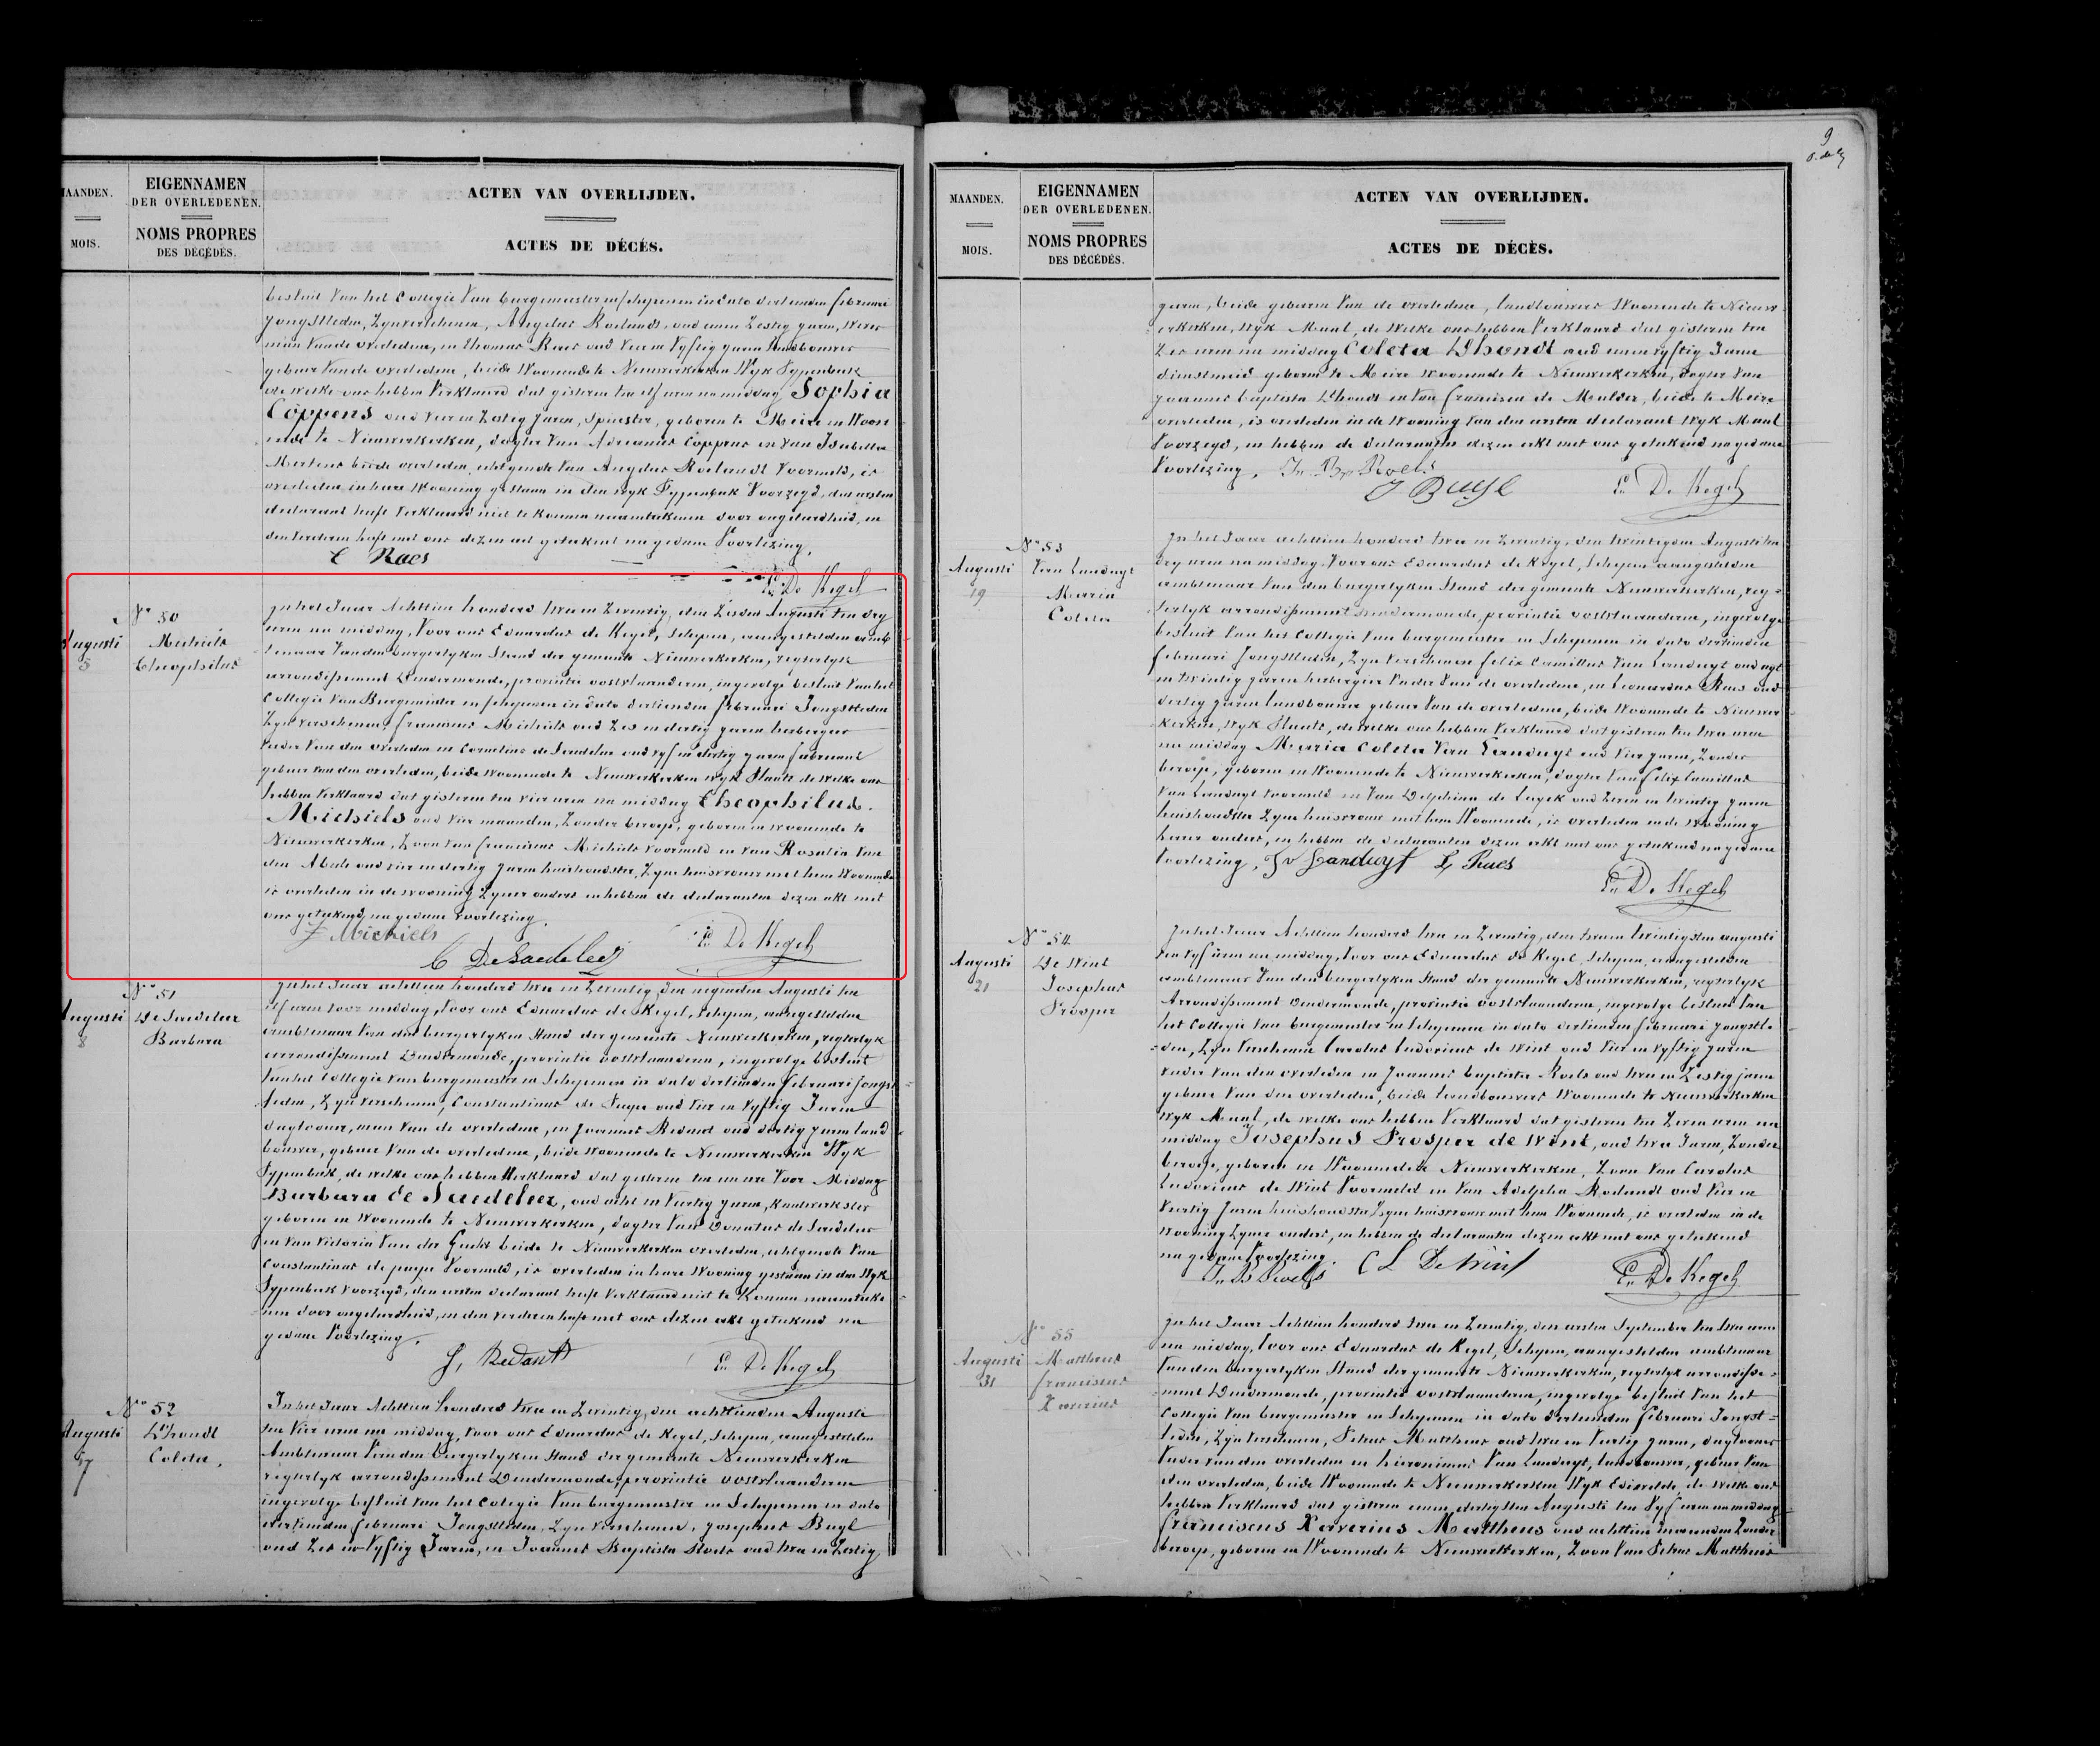 9
MAANDEN.
MOIS.
EIGENNAMEN
DER OVERLEDENEN.
NOMS PROPRES
DES DÉCÉDÉS.
ACTEN VAN OVERLIJDEN.
ACTES DE DÉCÈS.
besluit van het Collegie van burgemeester en schepenen in dato dertienden februari
jongstleden, zyn verschenen, Angelus Roelandt, oud eenen zestig jaren, wever
man van de overledene, en Thomas Raes oud vier en vyftig jaren landbouwer
gebuer van de overledene, beide woonende te Nieuwerkerken Wyk Sypenbeek
de welke ons hebben verklaard dat gisteren ten elf uren na middag Sophia
Coppens oud vier en zestig jaren, spinster, geboren te Meire en woon
ende te Nieuwerkerken, dogter van Adrianus Coppens en van Isabella
Mertens beide overleden, echtgenote van Angelus Roelandt voormeld, is
overleden in hare wooning gestaan in den wyk Sypenbeek voorzegd, den eersten
declarant heeft verklaard niet te konnen naamtekenen door ongeleerdheid, en
den tweeden heeft met ons dezen act getekent na gedane voorlezing.
C Raes
Ed De Kegel
No 50
Augusti
5
Michiels
Theophilus
In het Jaar Achttien honderd twee en zeventig, den zesden Augusti ten dry
uren na middag, voor ons Eduardus de Kegel, schepen, aangestelden amb
tenaar van den burgerlyken stand der gemeente Nieuwerkerken, regterlyk
arrondissement Dendermonde, provintie oostvlaanderen, ingevolge besluit van het
Collegie van Burgemeester en schepenen in dato dertienden februari Jongstleden
zyn verschenen, franciscus Michiels oud zes en dertig jaren herbergier
vader van den overleden en Cornelius de Saedeleer oud vyf en dertig jaren fabricant
gebuer van den overleden, beide woonende te Nieuwerkerken wyk Staats de welke ons
hebben verklaard dat gisteren ten vier uren na middag Theophilus
Michiels oud vier maanden, zonder beroep, geboren en woonende te
Nieuwerkerken, zoon van franciscus Michiels voormeld en van Rosalia Van
den Abeele oud vier en dertig jaren huishoudster, zyne huisvrouw met hem woonende
is overleden in de wooning zyner ouders en hebben de declaranten dezen akt met
ons getekend na gedane voorlezing.
F Michiels
C DeSaedeleer
Ed De Kegel
No 51
Augusti
8
De Saedeleer
Barbara
In het Jaar achttien honderd twee en zeventig, den negenden Augusti ten
elf uren voor middag, voor ons Eduardus de Kegel, schepen, aangestelden
ambtenaar van den burgerlyken stand der gemeente Nieuwerkerken, regterlyk
arrondissement Dendermonde, provintie oostvlaanderen, ingevolge besluit
van het Collegie van burgemeester en schepenen in dato dertienden februari jongst
leden, zyn verschenen, Constantinus de Paepe oud vier en vyftig Jaren
daglooner, man van de overledene, en Joannes Redant oud dertig jaren land
bouwer, gebuer van de overledene, beide woonende te Nieuwerkerken Wyk
Sypenbeek, de welke ons hebben verklaard dat gisteren ten een ure voor Middag
Barbara de Saedeleer, oud acht en veertig jaren, kantwerkster
geboren en woonende te Nieuwerkerken, dogter van Donatus de Saedeleer
en van Victoria Van der Gucht beide te Nieuwerkerken overleden, echtgenote van
Constantinus de paepe voormeld, is overleden in hare wooning gestaan in den Wyk
Sypenbeek voorzegd, den eersten declarant heeft verklaard niet te konnen naamteke
nen door ongeleerdheid, en den tweeden heeft met ons dezen akt getekend na
gedane voorlezing.
J, Redant
Ed De Kegel
No 52
Augusti
17
D'hondt
Coleta.
In het Jaar Achttien honderd twee en zeventig, den achttienden Augusti
ten vier uren na middag, voor ons Eduardus de Kegel, schepen, aangestelden
Ambtenaar van den burgerlyken Stand der gemeente Nieuwerkerken
regterlyk arrondissement Dendermonde, provintie oostvlaanderen
ingevolge besluit van het Colegie van burgemeester en schepenen in dato
dertienden februari Jongstleden, zyn verschenen, Josephus Buyl
oud zes en vyftig Jaren, en Joannes Baptista Roels oud twee en zestig
MAANDEN.
MOIS.
EIGENNAMEN
DER OVERLEDENEN.
NOMS PROPRES
DES DÉCÉDÉS.
ACTEN VAN OVERLIJDEN.
ACTES DE DÉCÈS.
jaren, beide geburen van de overledene, landbouwers Woonende te Nieuw
erkerken, wyk Maal, de welke ons hebben verklaard dat gisteren ten
zes uren na middag Coleta Dhondt oud eenen vyftig Jaren
dienstmeid geboren te Meire woonende te Nieuwerkerken, dogter van
Joannes baptista Dhondt en van francisca de Meulder, beide te Meire
overleden, is overleden in de wooning van den eersten declarant Wyk Maal
voorzegd, en hebben de declaranten dezen akt met ons getekend na gedane
voorlezing. Jn Bte Roels
J Buyl
Ed De Kegel
No 53
Augusti
19
Van Landuyt
Maria
Coleta
In het Jaar achttien honderd twee en zeventig, den twintigsten Augusti ten
dry uren na middag, voor ons Eduardus de Kegel, schepen aangestelden
ambtenaar van den burgerlyken Stand der gemeente Nieuwerkerken, reg-
terlyk arrondissement Dendermonde, provintie oostvlaanderen, ingevolge
besluit van het Collegie van burgemeester en schepenen in dato dertienden
februari jongstleden, zyn verschenen felix Camillus Van Landuyt oud agt
en twintig jaren herbergier vader van de overledene, en Leonardus Raes oud
dertig jaren landbouwer gebuer van de overledene, beide woonende te Nieuwer
kerken, wyk Staats, de welke ons hebben verklaard dat gisteren ten twee uren
na middag Maria Coleta Van Landuyt oud vier jaren, zonder
beroep, geboren en woonende te Nieuwerkerken, dogter van felix Camillus
Van Landuyt voormeld en van Delphina de Luyck oud zeven en twintig jaren
huishoudster zyne huisvrouw met hem woonende, is overleden in de wooning
harer ouders, en hebben de declaranten dezen akt met ons getekend na gedane
voorlezing. F v Landuyt L, Raes
Ed De Kegel
No 54
Augusti
21
De Wint
Josephus
Prosper
In het Jaar Achttien honderd twee en zeventig, den tween twintigsten augusti
ten vyf uren na middag, voor ons Eduardus de Kegel, schepen, aangestelden
ambtenaar van den burgerlyken Stand der gemeente Nieuwerkerken, regterlyk
Arrondissement Dendermonde, provintie oostvlaanderen, ingevolge besluit van
het Collegie van burgemeester en schepenen in dato dertienden februari jongstle
-den, zyn verschenen Carolus Ludovicus de Wint oud vier en vyftig jaren
vader van den overleden en Joannes baptista Roels oud twee en zestig jaren
gebuer van den overleden, beide landbouwers woonende te Nieuwerkerken
wyk Maal, de welke ons hebben verklaard dat gisteren ten zeven uren na
middag Josephus Prosper de Wint, oud twee Jaren, zonder
beroep, geboren en Woonende te Nieuwerkerken, zoon van Carolus
Ludovicus de Wint voormeld en van Adelphia Roelandt oud vier en
veertig jaren huishoudster zyne huisvrouw met hem Woonende, is overleden in de
wooning zyner ouders, en hebben de declaranten dezen akt met ons getekend
na gedane voorlezing.
Jn Bt Roels C L De Wint
Ed De Kegel
No 55
Augusti
31
Mattheus
franciscus
Xaverius
In het Jaar Achttien honderd twee en zeventig, den eersten September ten twee uren
na middag, voor ons Eduardus de Kegel, schepen, aangestelden ambtenaar
van den burgerlyken Stand der gemeente Nieuwerkerken, regterlyk arrondisse-
-ment Dendermonde, provintie oostvlaanderen, ingevolge besluit van het
Collegie van burgemeester en schepenen in dato dertienden februari Jongst-
leden, zyn verschenen, Petrus Mattheus oud twee en veertig jaren, daglooner
vader van den overleden en hieronimus Van Landuyt, landbouwer, gebuer van
den overleden, beide Woonende te Nieuwerkerken Wyk Edixvelde, de welke ons
hebben verklaard dat gisteren eenen dertigsten Augusti ten vyf uren na middag
franciscus Xaverius Mattheus oud achttien maanden zonder
beroep, geboren en Woonende te Nieuwerkerken, zoon van Petrus Mattheus